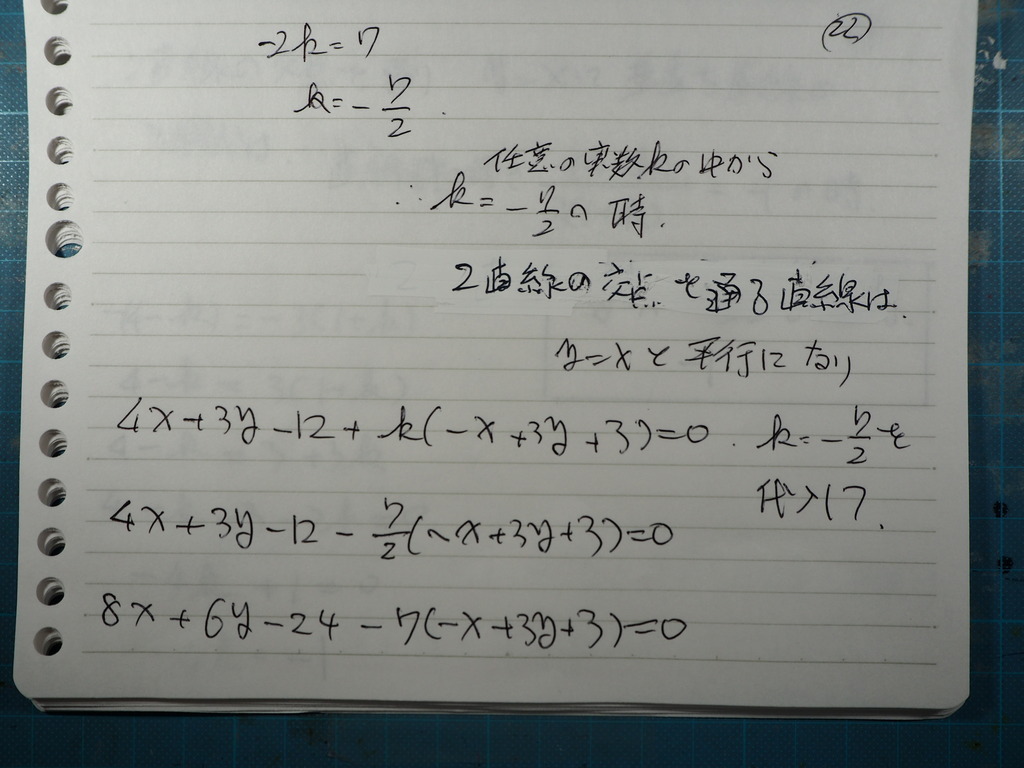 (22)
-2k=7
k=-7/2.
任意の実数kの中から
∴k=-7/2の時.
2直線の交点を通る直線は.
y=xと平行になり
4x+3y-12+k(-x+3y+3)=0. k=-7/2を
代入して.
4x+3y-12-7/2(-x+3y+3)=0
8x+6y-24-7(-x+3y+3)=0